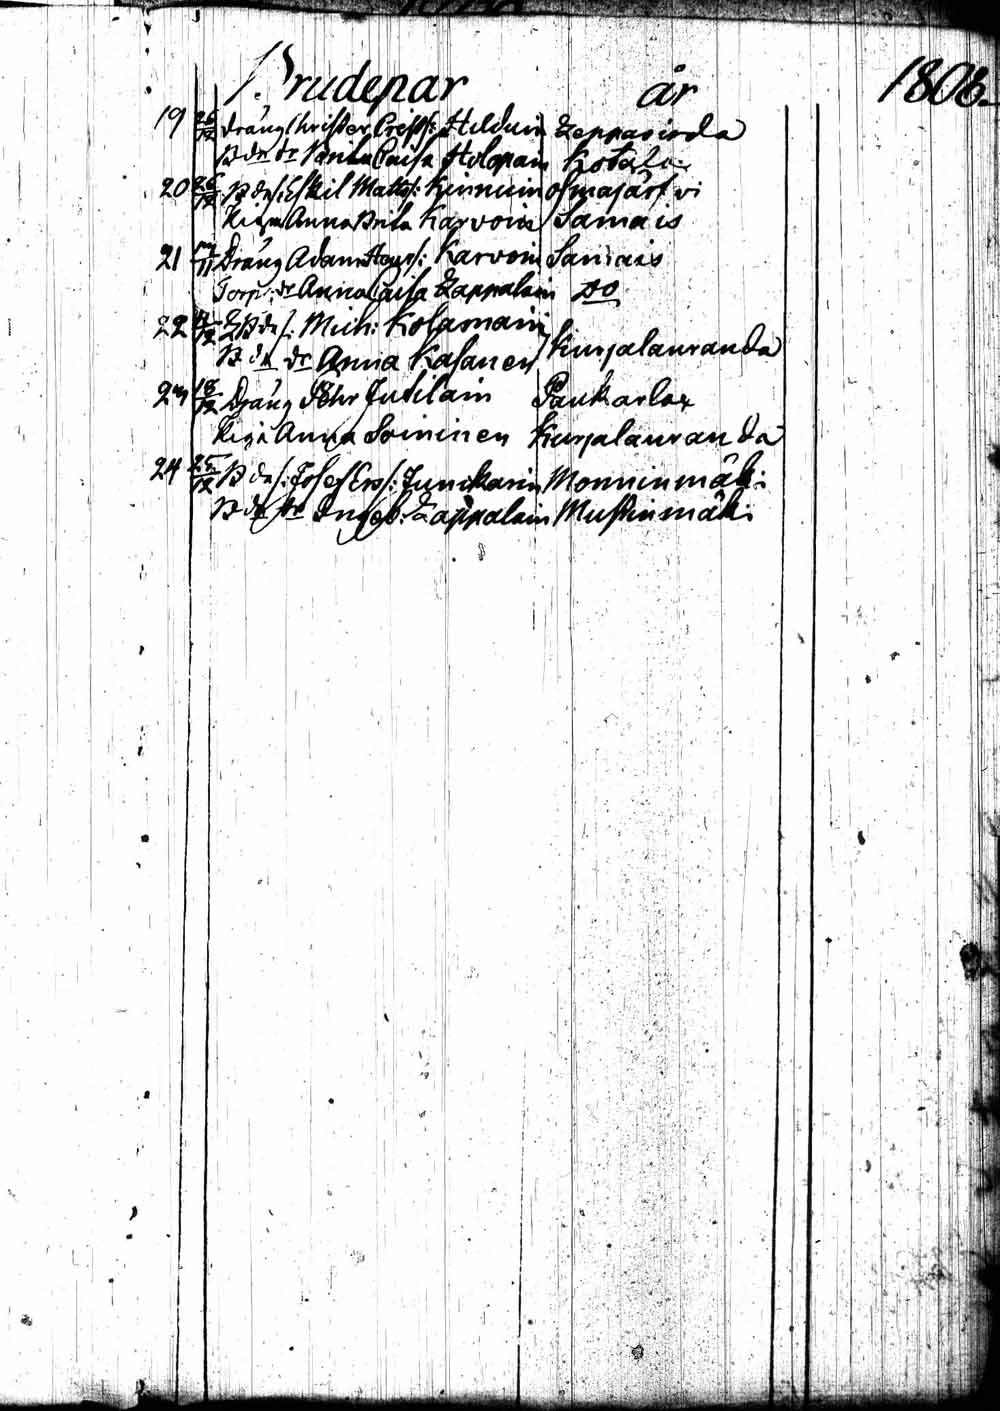 Brudepar år 1808
19 26/12 Dräng Christer Christs: Hilduin Leppärinda
B dr dr Brita Caisa Holopain Kotala
20 26/12 B des: Eskil Matts: Kinnuin Osmajärfvi
Piga Anna Brita Karvoin Samais
21 /11 Dräng Adam Henrs: Karvoin Samais
Torp: dr Anna Caisa Lappalain do
22 /12 B des: Mich: Kolamain
B de dr Anna Kasanen Kurjalauranda
23 18/12 Dräng Pehr Jutilain Paukarlax
Piga Anna Soininen Kurjalauranda
24 25/12 B des: Josef Ers: Junckarin Monninmäki
B de dr Ingeb: Lappalain Mustinmäki